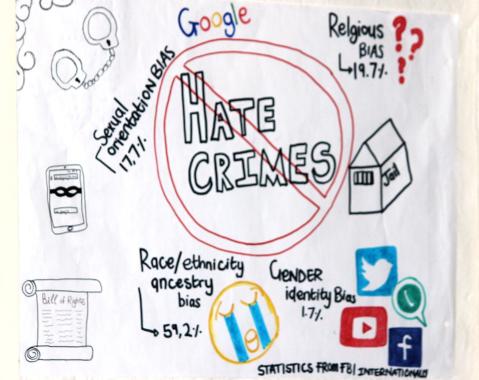 Google
Relgious
BIAS
19.7%
Sexual
orientation BIAS
17,7%
HATE
CRIMES
Jail
Bill of Rights
Race/ethnicity
ancestry
bias
59,2%
GENDER
identity Bias
1.7%
f
STATISTICS FROM FBI INTERNATIONALLY